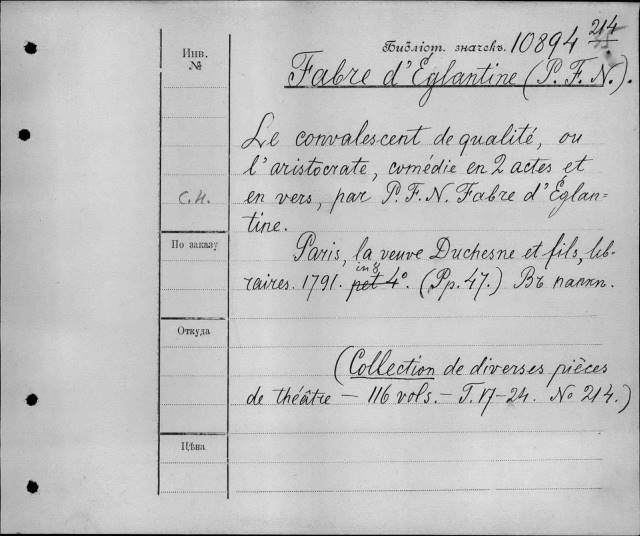 Инв.
№
Библіот. значекъ. 10894 214
Fabre d'Églantine (P. F. N.).
Le convalescent de qualité, ou
l'aristocrate, comédie en 2 actes et
С.Н.
en vers, par P. F. N. Fabre d'Églan=
tine.
По заказу
Paris, la veuve Duchesne et fils, lib-
in 8
raires. 1791. pet 4°. (Pp. 47.) Въ папкѣ.
Откуда
(Collection de diverses pièces
de théâtre — 116 vols. — T. 17-24. No 214.)
Цѣна